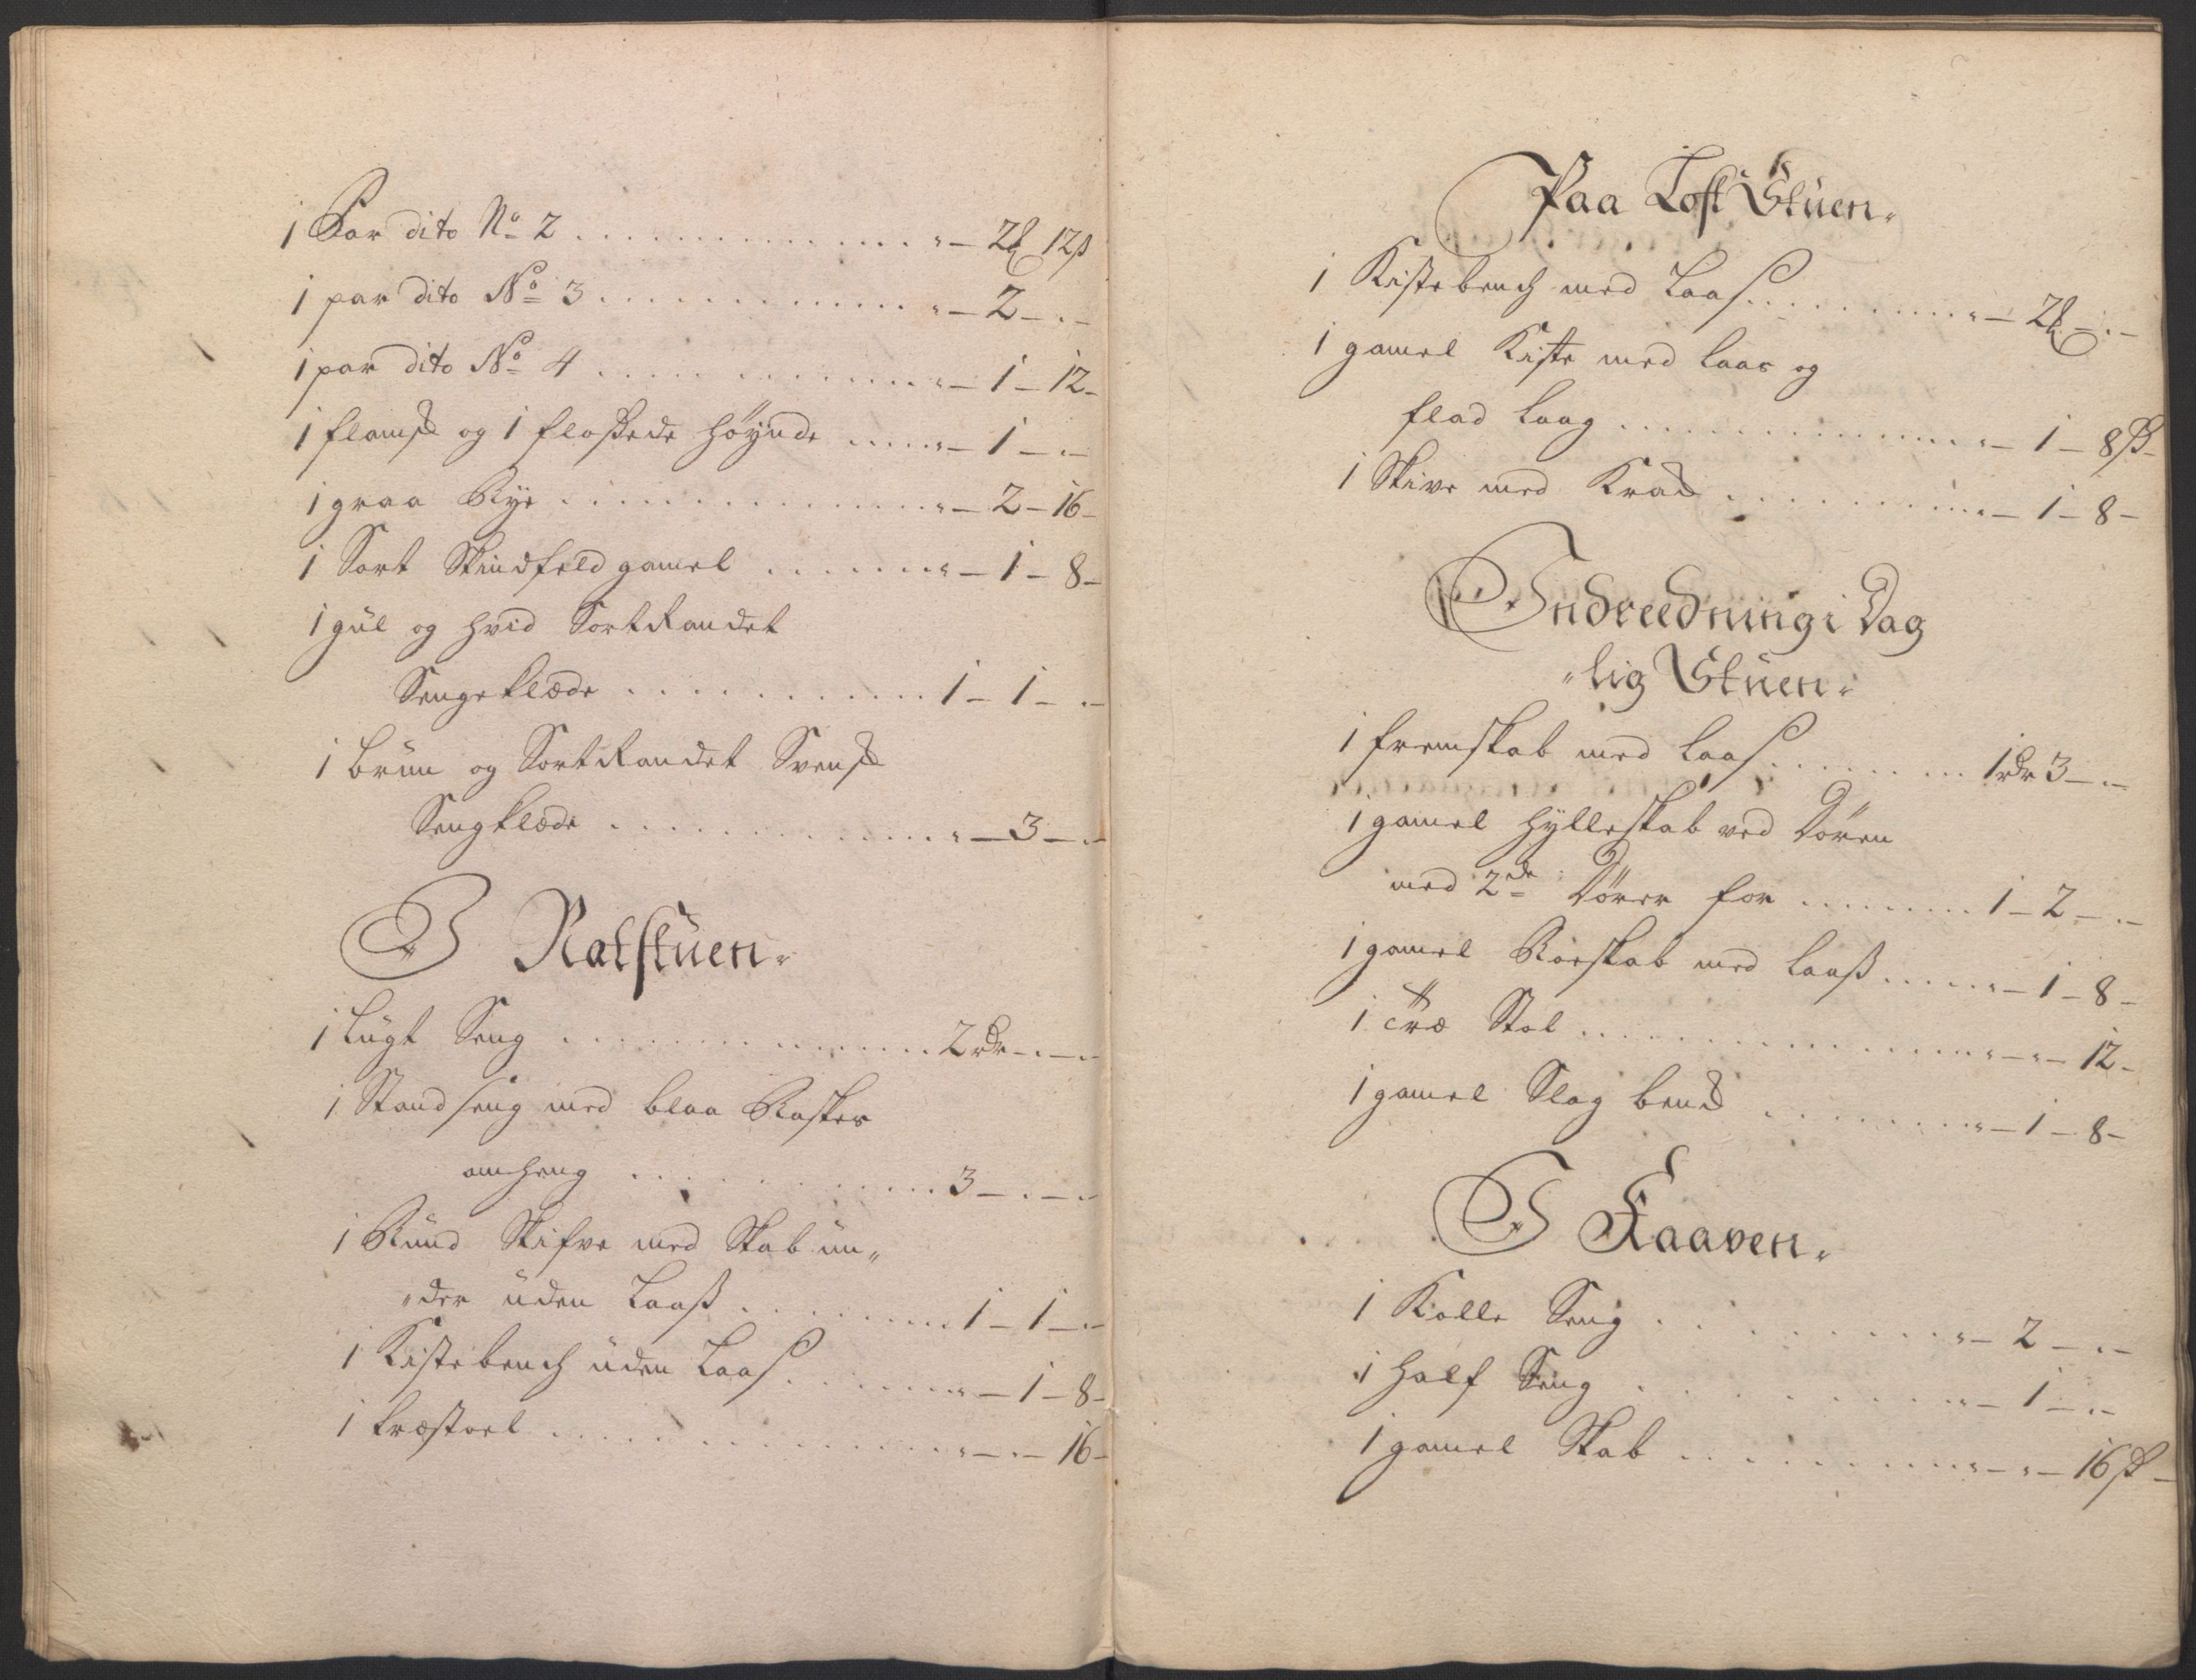 1 Par dito No 2 . . . . . . " – 2 12 ß
1 par dito No 3 . . . . . . " – 2 – " –
1 par dito No 4 . . . . . . " – 1 – 12 –
1 flamsk og 1 floßede Höynde . . . . " – 1 – " –
1 graa Rye . . . . . . " – 2 – 16 –
1 Sort Skindfeld gamel . . . . . . " – 1 – 8 –
1 gül og hvid Sort Randet
Sengeklæde . . . . . . 1 – 1 – " –
1 brün og Sort Randet Svensk
Sengklæde . . . . . . " – 3 – " –
I Natstüen.
1 Lügt Seng . . . . . . 2 rdr – " – " –
1 Stand seng med blaa Raskes
omheng . . . . . . 3 – " – " –
1 Ründ Skifve med Skab ün„
„der üden Laaß . . . . . . 1 – 1 – " –
1 Kistebench üden Laas . . . . . . " – 1 – 8 –
1 træstoel . . . . . . " – " – 16 –
Paa Loft Stüen.
1 Kistebench med Laas . . . . . . " – 2 – " –
1 gamel Kiste med laas og
flad laag . . . . . . " – 1 – 8 ß –
1 Skive med Krak . . . . . . " – 1 – 8 –
Indreedning i Dag
„lig Stüen.
1 fremskab med laas . . . . . . 1 rdr 3 – " –
1 gamel Hylleskab ved Dören
med 2de Dörer for . . . . . . 1 – 2 – " –
1 gamel Roeskab med laaß . . . . . " – 1 – 8 –
1 træ Stol . . . . . . " – " – 12 –
1 gamel Slag benk . . . . . . " – 1 – 8 –
I Kaaven.
1 Rolle Seng . . . . . . " – 2 – " –
1 Half Seng . . . . . . " – 1 – " –
1 gamel Skab . . . . . . " – " – 16 ß –